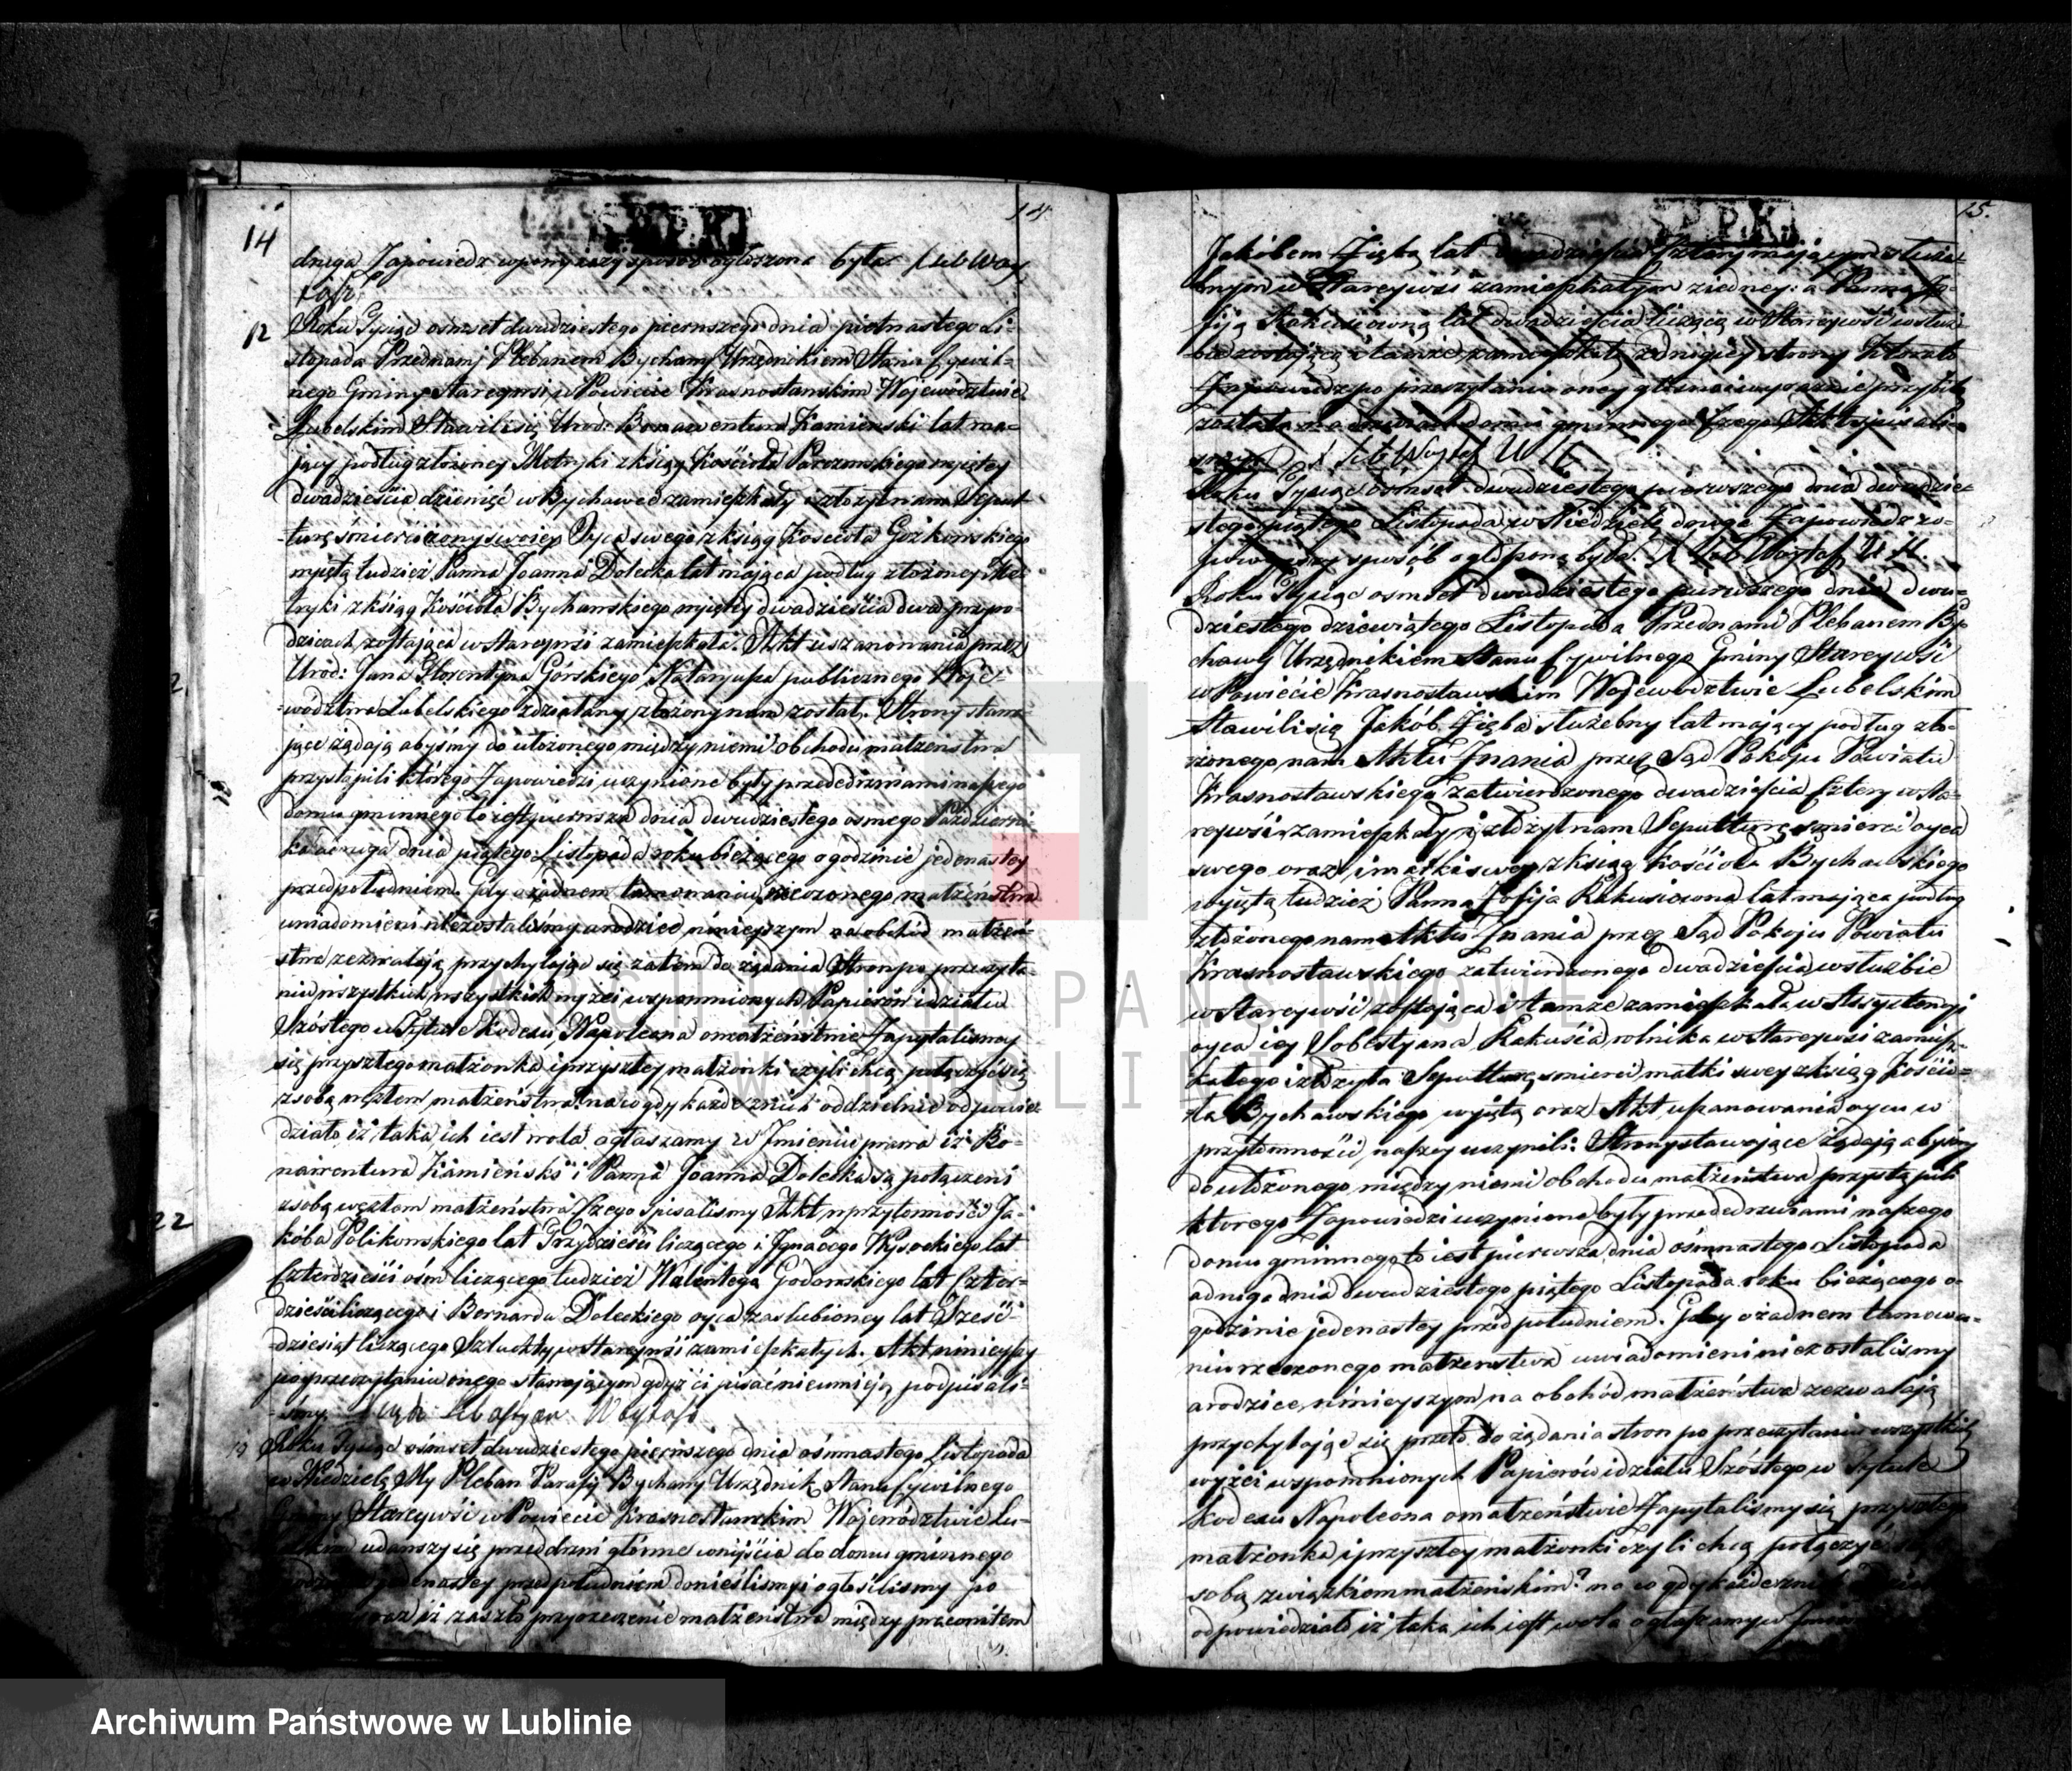 14
14
druga Zapowiedz w powyzszy sposób ogłoszona była.
12 Roku Tysiąc osmset dwudziestego pierwszego dnia pietnastego Li-
stopada Przednami Plebanem Bychawy Urzędnikiem Stanu Cywil-
nego Gminy Stareywsi w Powiecie Krasnostawskim Województwie
Lubelskim Stawili się Urod: Bonawentura Kamienski lat ma-
jący podług złożoney Metryki z ksiąg Kościoła wyiętey
dwadzieścia dziewięć w Bychawce zamieszkały i złożył nam Sepul-
turę śmierci Oyca swego z ksiąg Kościoła
wyiętą tudzież Panna Joanna Dolecka lat mająca podług złożoney Me-
tryki z ksiąg Kościoła Bychawskiego wyiętey dwadzieścia dwa przy ro-
dzicach zostająca w Stareywsi zamieszkała. Akt uszanowania przez
Urod: Jana Florentyna Górskiego Nataryusza publicznego Woje-
wództwa Lubelskiego zdziałany złożony nam został. Strony stawa-
jące żądają abyśmy do ułożonego między niemi obchodu małżeństwa
przystąpili którego Zapowiedzi uczynione były przede drzwiami naszego
domu gminnego to iest pierwsza dnia dwudziestego osmego Październi-
ka a druga dnia piątego Listopada roku bieżącego o godzinie jedenastey
przed południem. Gdy o żadnem tamowaniu rzeczonego małżeństwa
uwiadomieni niezostaliśmy a rodzice ninieyszym na obchód małżeń-
stwa zezwalają przychylając się zatem do żądania Stron po przeczyta-
niu wszystkich wszystkich wyżei wspomnionych Papierów i działu
Szóstego w Tytule Kodexu Napoleona o małżeństwie Zapytalismy
się przyszłego małżonka i przyszłey małżonki czyli chcą połączyć się
z sobą węzłem małżeństwa? na co gdy każde z nich oddzielnie odpowie-
działo iż taka ich iest wola ogłaszamy w Imieniu prawa iż Bo-
nawentura Kamieński i Panna Joanna Dolecka są połączeni
z sobą węzłem małżeństwa Czego Spisalismy Akt w przytomności Ja-
kóba Polikowskiego lat Trzydzieści liczącego i Ignacego Wysockiego lat
Czterdzieści ośm liczącego tudzież Walentego Godowskiego lat Czter-
dzieści liczącego i Bernarda Doleckiego oyca zaślubioney lat Sześć-
dziesiąt liczącego Szlachty w Stareywsi zamieszkałych. Akt ninieyszy
po przeczytaniu onego stawającym gdyż ci pisać nieumieją podpisali-
śmy.
13 Roku Tysiąc ośmset dwudziestego pierwszego dnia ośmnastego Listopada
w Niedzielę My Pleban Parafij Bychawy Urzędnik Stanu Cywilnego
Gminy Stareywśi w Powiecie Krasnostawskim Województwie Lu-
belskim udawszy się przed drzwi główne weniyścia do domu gminnego
o godzinie jedenastey przed południem donieślismy i ogłosilismy po
raz iż zaszło przyrzeczenie małżeństwa między pracowitem
15.
Jakóbem Ziębą lat dwadzieścia Cztery mającym służe-
bnym w Stareywsi zamieszkałym z iedney: a Panną Zo-
fiją Rakusiowną lat dwadzieścia liczącą w Stareywsi w służ-
bie zostającą i tamże zamieszkałą z drugiey strony Która to
Zapowiedz po przeczytaniu oney głośno i wyraznie przybita
została na drzwiach domu gminnego Czego Akt spisali-
Roku Tysiąc ośmset dwudziestego pierwszego dnia dwudzie-
stego piątego Listopada w Niedzielę druga Zapowiedz w
powyższy sposób ogłoszoną była.
Roku Tysiąc osmset dwudziestego pierwszego dnia dwu-
dziestego dziewiątego Listopada Przednami Plebanem By-
chawy Urzędnikiem Stanu Cywilnego Gminy Stareywśi
w Powiecie Krasnostawskim Województwie Lubelskim
Stawili się Jakób Zięba służebny lat mający podług zło-
żonego nam Aktu Znania przez Sąd Pokoju Powiatu
Krasnostawskiego zatwierdzonego dwadzieścia Cztery w Sta-
reywsi zamieszkały i złożył nam Sepulturę śmierci oyca
swego oraz i matki swey z ksiąg Kościoła Bychawskiego
wyiętą tudzież Panna Zofija Rakusiowna lat mająca podług
złożonego nam Aktu Znania przez Sąd Pokoju Powiatu
Krasnostawskiego zatwierdzonego dwadzieścia w służbie
w Stareywśi zostająca i tamże zamieszkała w Assystencyi
oyca iey Sobestyana Rakuśia rolnika w Stareywsi zamiesz-
kałego i złożyła Sepulturę śmierci matki swey z ksiąg Kościo-
ła Bychawskiego wyiętą oraz Akt uszanowania oycu w
przytomności naszey uczynili: Strony stawające żądają abyśmy
do ułożonego między niemi obchodu małżeństwa przystąpili
którego Zapowiedzi uczynione były przede drzwiami naszego
domu gminnego to iest pierwsza dnia ośmnastego Listopada
a druga dnia dwudziestego piątego Listopada roku bieżącego o
godzinie jedenastey przed południem. Gdy o żadnem tamowa-
niu rzeczonego małżeństwa uwiadomieni niezostalismy
a rodzice ninieyszym na obchód małżeństwa zezwalają
przychylając się przeto do żądania stron po przeczytaniu wszystkich
wyżei wspomnionych Papierów i działu Szóstego w Tytule
Kodexu Napoleona o małżeństwie Zapytalismy się przyszłego
małżonka i przyszłey małżonki czyli chcą połączyć się z
sobą związkiem małżeńskim? na co gdy każde z nich
odpowiedziało iż taka ich iest wola ogłaszamy w Imieniu
Archiwum Państwowe w Lublinie